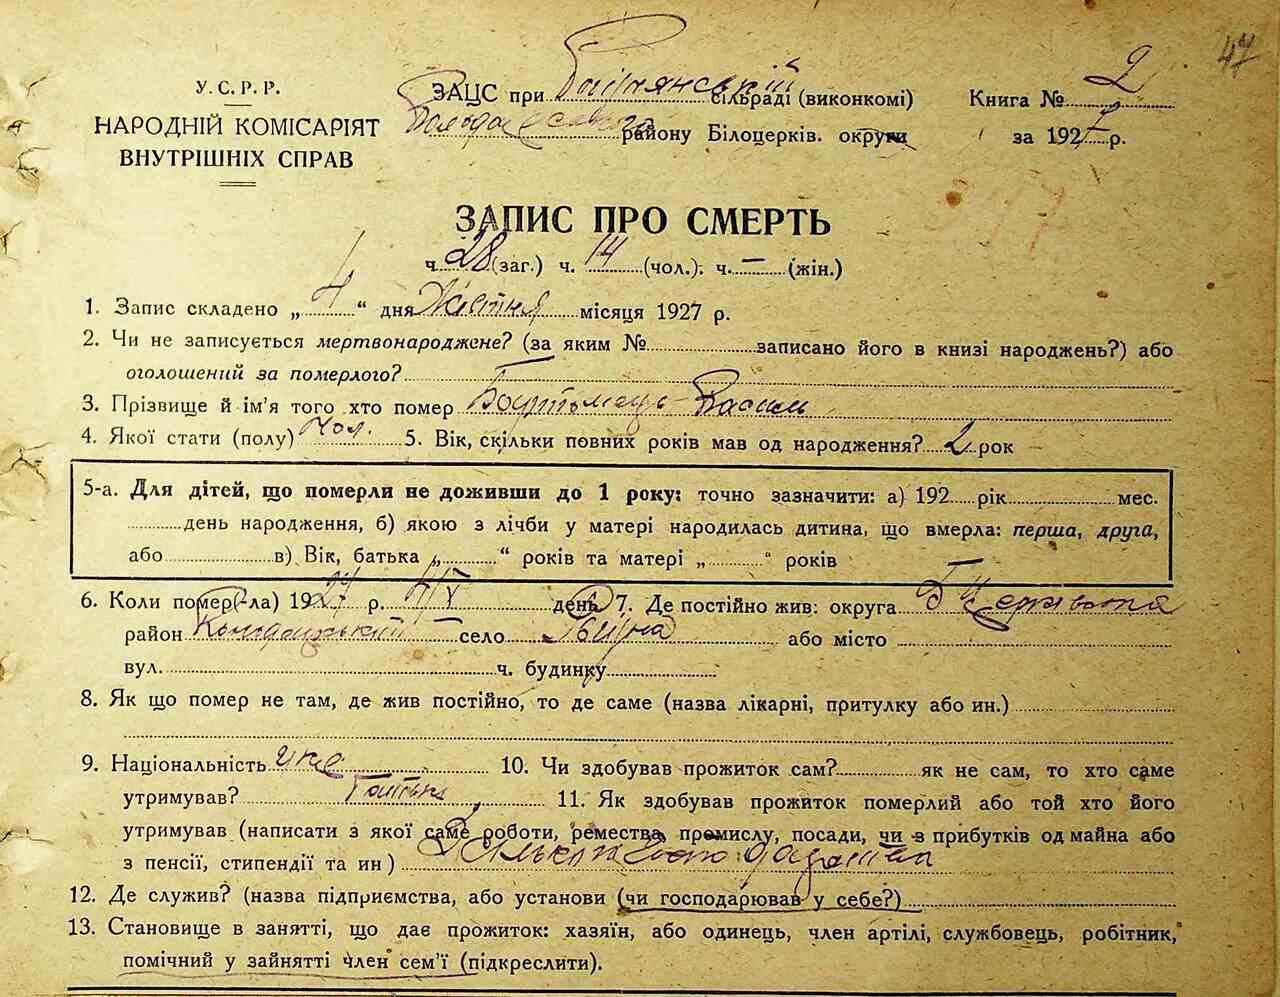 47
У.С.Р.Р.
НАРОДНІЙ КОМІСАРІЯТ
ВНУТРІШНІХ СПРАВ
ЗАЦС при сільраді (виконкомі)
району Білоцерків. округи
Книга № 2
за 1927 р.
ЗАПИС ПРО СМЕРТЬ
ч. 28 (заг.) ч. 14 (чол.); ч. — (жін.)
1. Запис складено „ 4 “ дня Жовтня місяця 1927 р.
2. Чи не записується мертвонароджене? (за яким № записано його в книзі народжень?) або
оголошений за померлого? —
3. Прізвище й ім'я того хто помер Василь
4. Якої стати (полу) чол. 5. Вік, скільки повних років мав од народження? 2 рок
5-а. Для дітей, що померли не доживши до 1 року: точно зазначити: а) 192 рік мес.
день народження, б) якою з лічби у матері народилась дитина, що вмерла: перша, друга,
або в) Вік, батька „ “ років та матері „ “ років
6. Коли помер(-ла) 1927 р. день 7. Де постійно жив: округа Б Церківська
район село або місто
вул. ч. будинку
8. Як що помер не там, де жив постійно, то де саме (назва лікарні, притулку або ин.)
9. Національність укр 10. Чи здобував прожиток сам? як не сам, то хто саме
утримував? Батько 11. Як здобував прожиток померлий або той хто його
утримував (написати з якої саме роботи, ремества, промислу, посади, чи з прибутків од майна або
з пенсії, стипендії та ин)
12. Де служив? (назва підприємства, або установи (чи господарював у себе?)
13. Становище в занятті, що дає прожиток: хазяїн, або одинець, член артілі, службовець, робітник,
помічний у зайнятті член сем'ї (підкреслити).